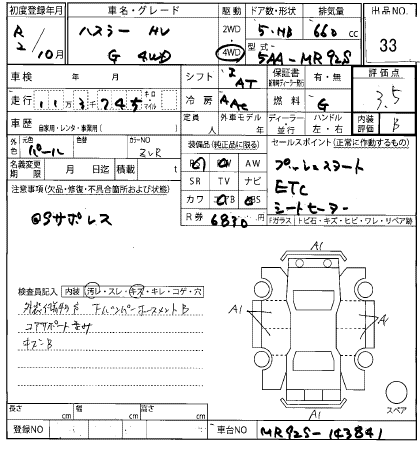 初度登録年月 車名・グレード 駆動 ドア数・形状 排気量 出品NO.
R2/10月 ハスラー HV 2WD 5・HB 660cc 33
G 4WD 4WD 型式 5AA-MR92S
車検 年 月 シフト I AT 保証書 有・無 評価点
走行 113,245 キロ マイル 冷房 AAC 燃料 G 3.5
車歴 自家用・レンタ・事業用( ) 定員 人 外車モデル 年 ディーラー 並行 ハンドル 左・右 内装評価 B
色 元色 パール 色替 カラーNO ZVR 装備品(純正品に限る) セールスポイント(正常に作動するもの)
名義変更期限 月 日迄 積載量 t AW プッシュスタート
注意事項(欠品・修復・不具合箇所および状態) SR TV ナビ ETC
カワ シートヒーター
R券 6830 Fガラス トビ石・キズ・ヒビ・ワレ・リペア跡
Sサポレス
A1
検査員記入 内装 汚レ・スレ・キズ・キレ・コゲ・穴
A1 A1
コアサポート
A1
スペア
長さ cm 幅 cm 高さ cm
登録NO 車台NO MR92S-143841